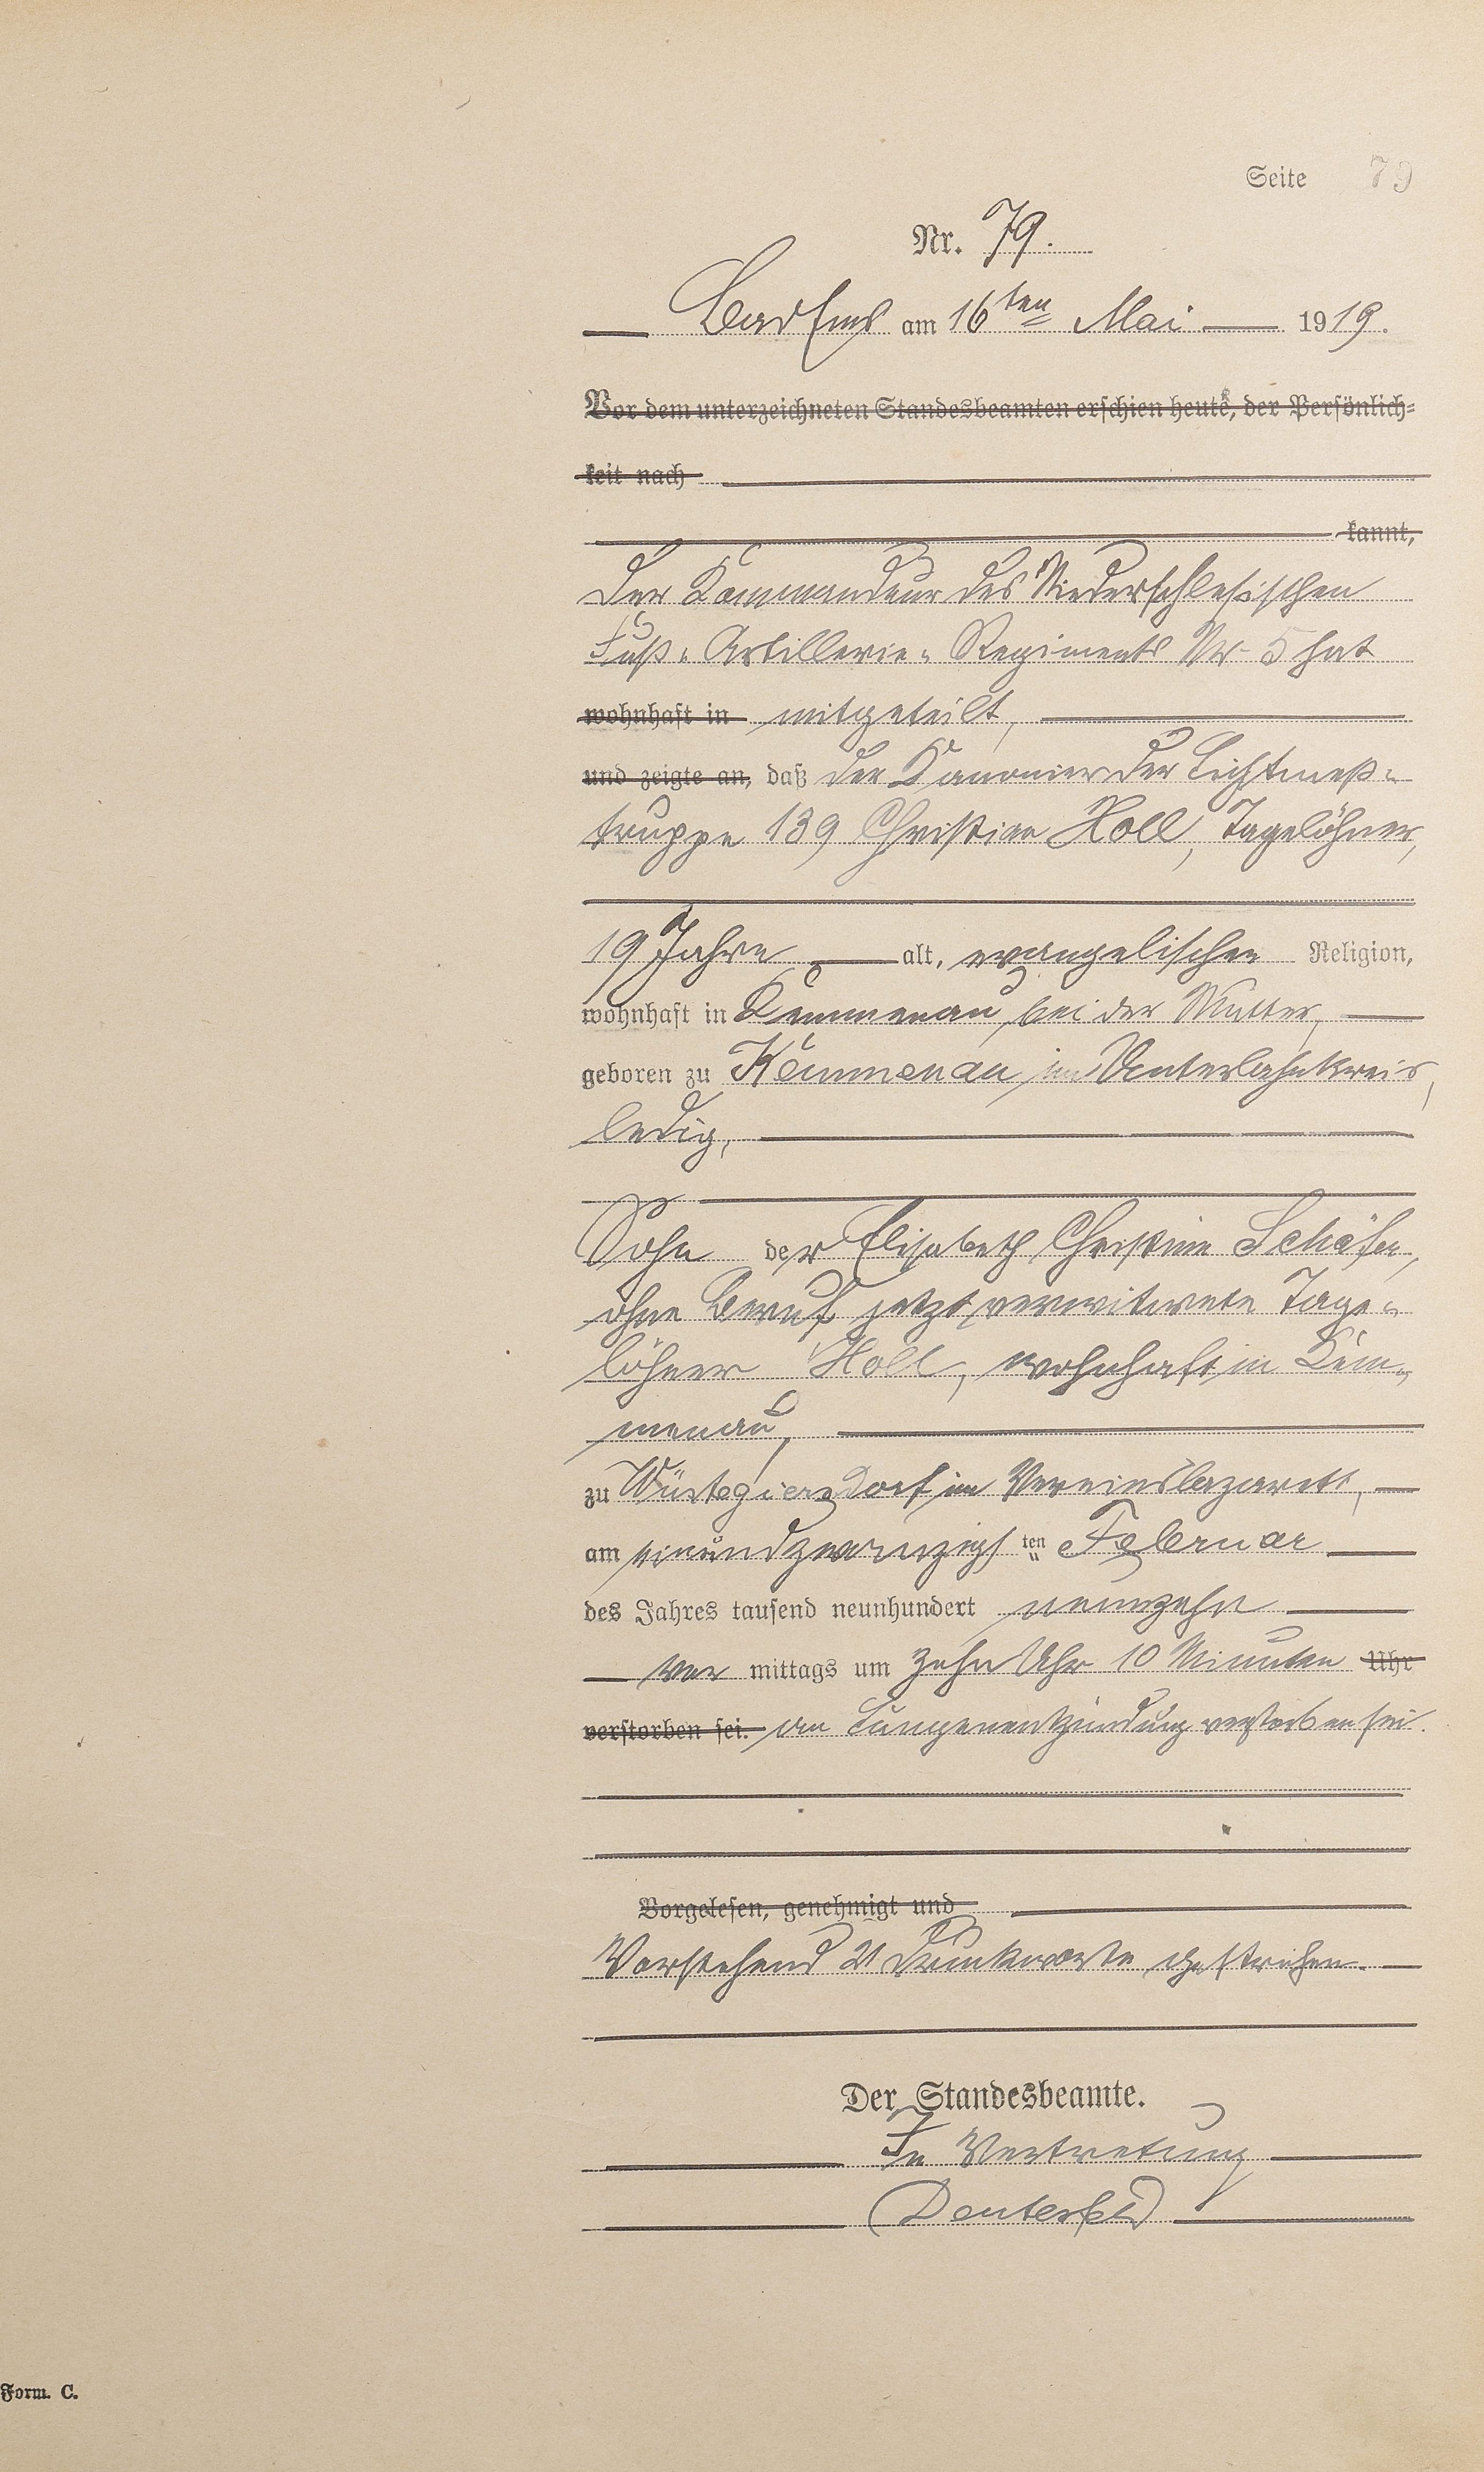 Seite 79
Nr. 79.
Bad Ems am 16ten Mai 1919.
Vor dem unterzeichneten Standesbeamten erschien heute, der Persönlich=
keit nach
kannt,
Der Kommandeur des Niederschlesischen
Fuß-Artillerie-Regiments Nr 5 hat
wohnhaft in mitgeteilt,
und zeigte an, daß der Kanonier der Lichtmeß-
truppe 139 Christian Holl, Tagelöhner,
19 Jahre alt, evangelischer Religion,
wohnhaft in Kemmenau, bei der Mutter,
geboren zu Kemmenau im Unterlahnkreis,
ledig,
Sohn der Elisabeth Christine Schäfer,
ohne Beruf, jetzt verwitwete Tage-
löhner Holl, wohnhaft in Kem-
menau,
zu Wüstegiersdorf im Vereinslazarett,
am einundzwanzigsten Februar
des Jahres tausend neunhundert neunzehn
vor mittags um zehn Uhr 10 Minuten Uhr
verstorben sei. an Lungenentzündung verstorben sei.
Vorgelesen, genehmigt und
Vorstehend 21 Druckworte gestrichen.
Der Standesbeamte.
In Vertretung
Form. C.